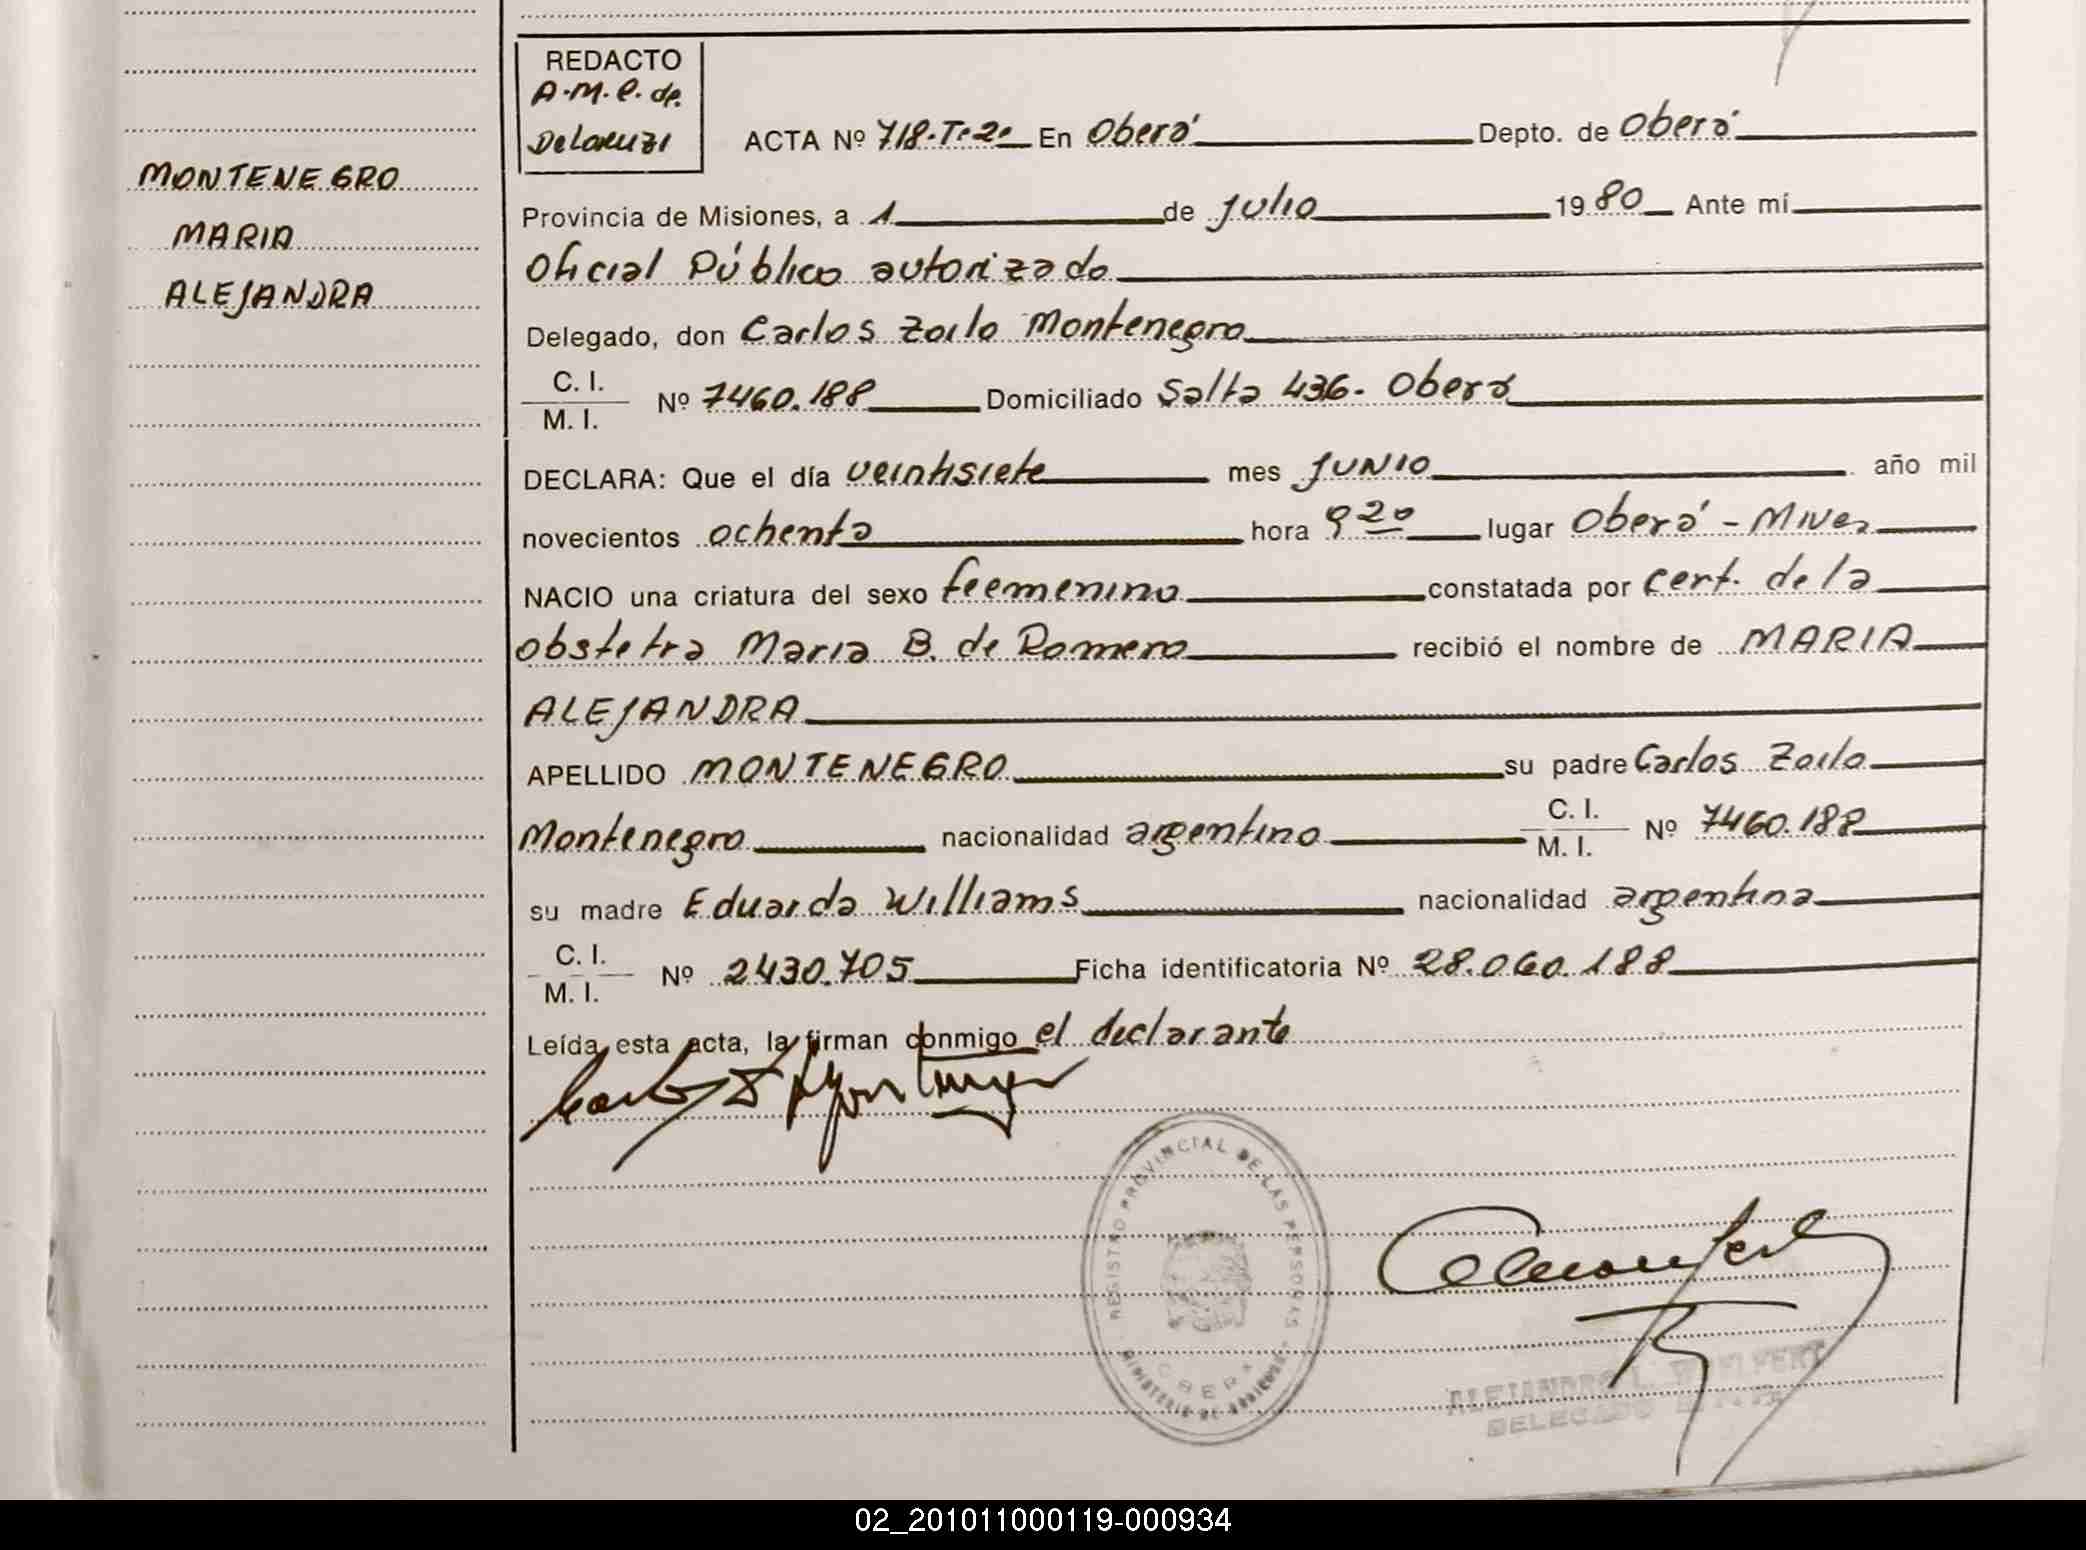 REDACTO
A.M.C. de
DeLoruzi
MONTENEGRO
MARIA
ALEJANDRA
ACTA Nº 718-Tº2º En Oberá Depto. de Oberá
Provincia de Misiones, a 1 de Julio 1980 Ante mí
Oficial Público autorizado
Delegado, don Carlos Zoilo Montenegro
C. I.
M. I. Nº 7460.188 Domiciliado Salta 436. Oberá
DECLARA: Que el día veintisiete mes JUNIO año mil
novecientos ochenta hora 9 20 lugar Oberá - Mnes
NACIO una criatura del sexo feemenino constatada por cert. de la
obstetra Maria B. de Romero recibió el nombre de MARIA
ALEJANDRA
APELLIDO MONTENEGRO su padre Carlos Zoilo
Montenegro nacionalidad argentino C. I. M. I. Nº 7460.188
su madre Eduarda Williams nacionalidad argentina
C. I.
M. I. Nº 2430.705 Ficha identificatoria Nº 28.060.188
Leída esta acta, la firman conmigo el declarante
REGISTRO PROVINCIAL DE LAS PERSONAS
OBERA
MINISTERIO DE GOBIERNO
ALEJANDRO L.
DELEGADO
02_201011000119-000934